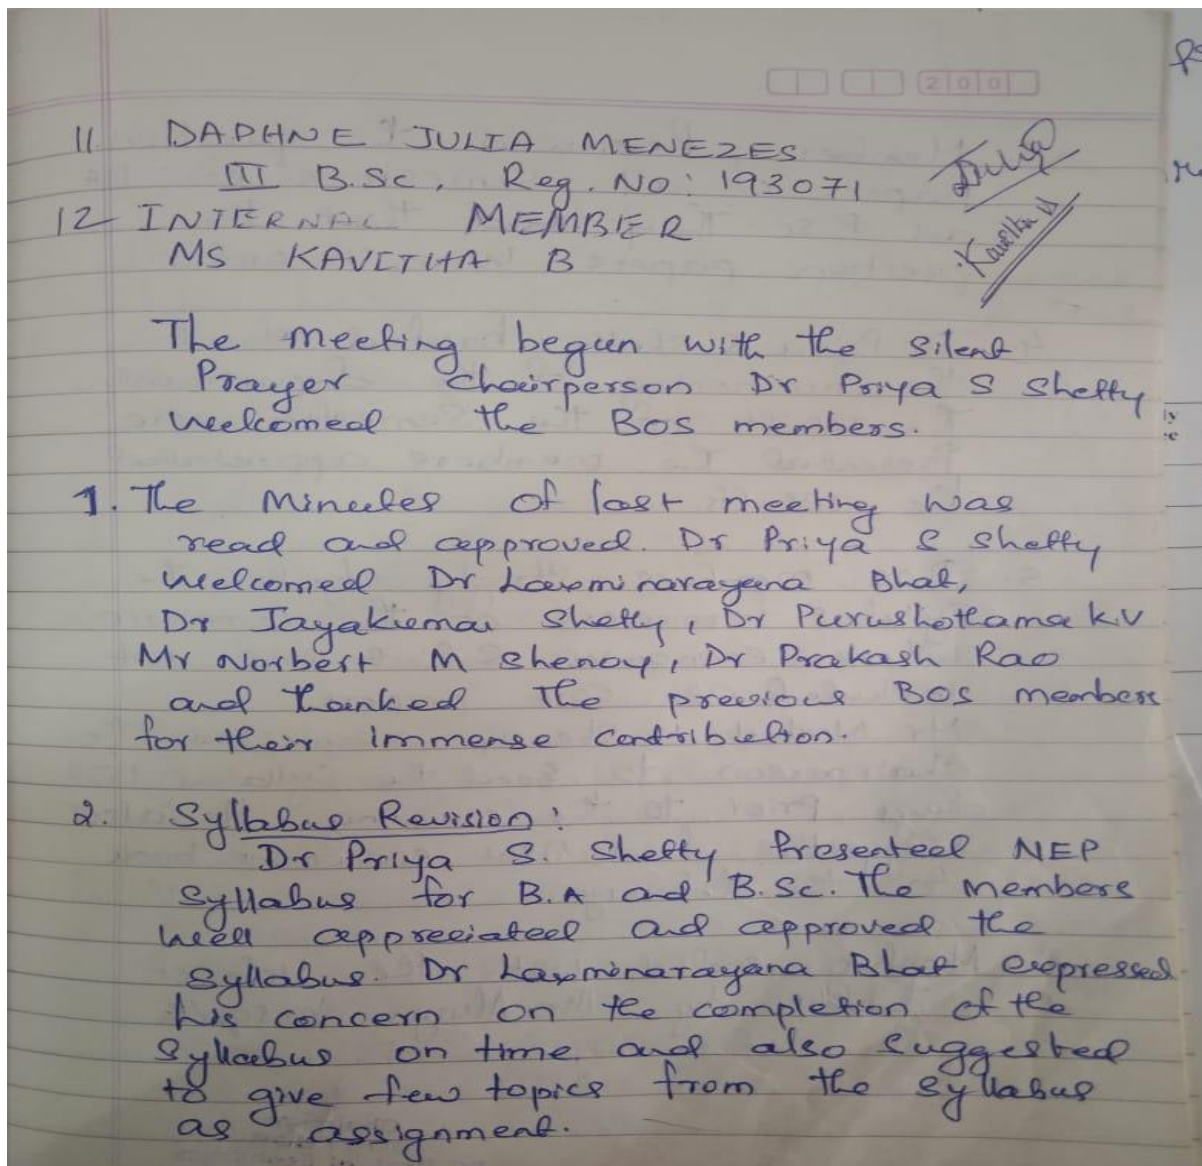 200
11 DAPHNE JULIA MENEZES
III B.Sc, Reg. No: 193071
Julia
12 INTERNAL MEMBER
MS KAVITHA B
Kavitha
The meeting begun with the silent
Prayer Chairperson Dr Priya S Shetty
welcomed the BOS members.
1. The Minutes of last meeting was
read and approved. Dr Priya S Shetty
welcomed Dr Laxminarayana Bhat,
Dr Jayakumar Shetty, Dr Purushothama K.V
Mr Norbert M Shenoy, Dr Prakash Rao
and thanked the previous BOS members
for their immense contribution.
2. Syllabus Revision:
Dr Priya S. Shetty Presented NEP
Syllabus for B.A and B.Sc. The members
well appreciated and approved the
syllabus. Dr Laxminarayana Bhat expressed
his concern on the completion of the
Syllabus on time and also suggested
to give few topics from the syllabus
as assignment.